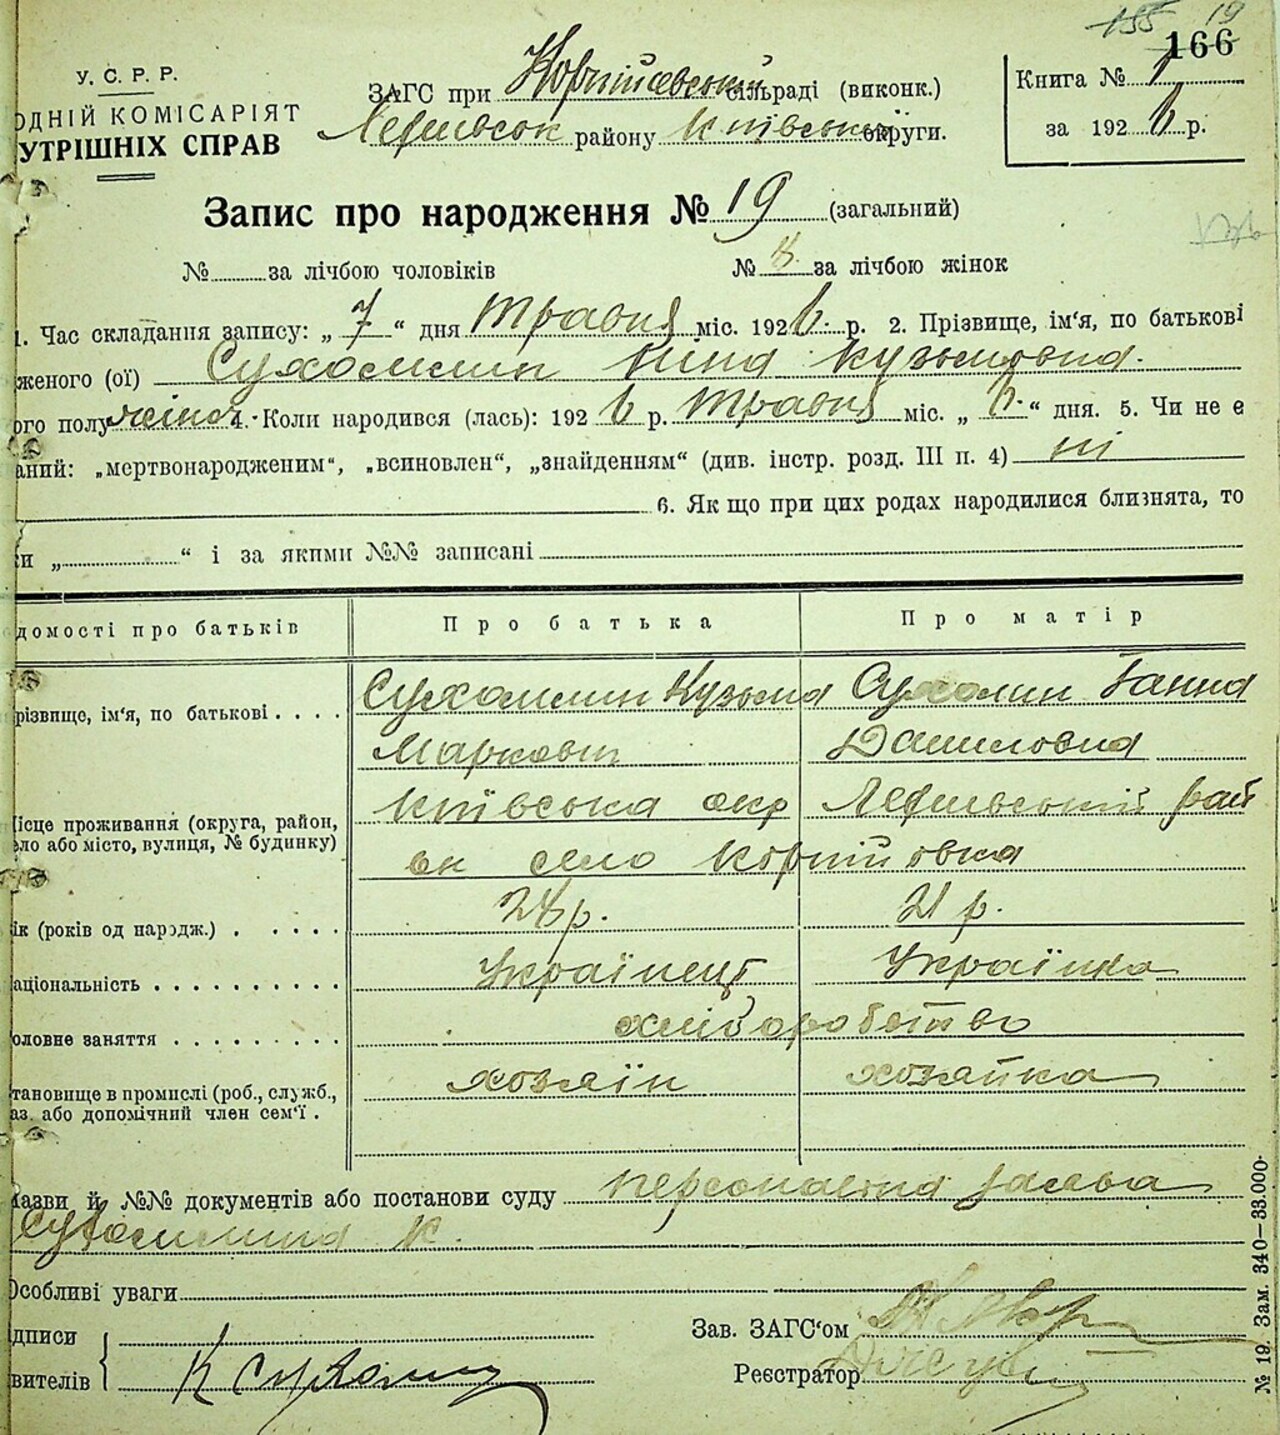 155 19
166
У. С. Р. Р.
ОДНІЙ КОМІСАРІЯТ
УТРІШНІХ СПРАВ
ЗАГС при Корнійовській сільраді (виконк.)
району Київської округи.
Книга № 1
за 192 6 р.
Запис про народження № 19 (загальний)
№ за лічбою чоловіків № 8 за лічбою жінок
1. Час складання запису: „ 7 “ дня Травня міс. 192 6. р. 2. Прізвище, ім'я, по батькові
женого (ої) Сухомлин Ніна Кузьмовна.
ого полу жіноч. 4. Коли народився (лась): 192 6 р. Травня міс. „ 6. “ дня. 5. Чи не є
аний: „мертвонародженим“, „всиновлен“, „знайденням“ (див. інстр. розд. III п. 4) ні
6. Як що при цих родах народилися близнята, то
ки „ “ і за якими №№ записані
домості про батьків Про батька Про матір
різвище, ім'я, по батькові . . . . Сухомлин Кузьма Сухомлин Ганна
Маркович Даниловна
Київська окр рай
ісце проживання (округа, район,
ело або місто, вулиця, № будинку)
он село Корнійовка
ік (років од народж.) . . . . . 28 р. 21 р.
аціональність . . . . . . . . . . Українець Українка
оловне заняття . . . . . . . . . хліборобство
тановище в промислі (роб., служб.,
аз. або допомічний член сем'ї . хозяїн хозяйка
Назви й №№ документів або постанови суду персональна заява
Сухомлина К.
Особливі уваги
дписи
вителів
К Сухомлин
Зав. ЗАГС'ом
Реєстратор
№ 19. Зам. 340—33.000.